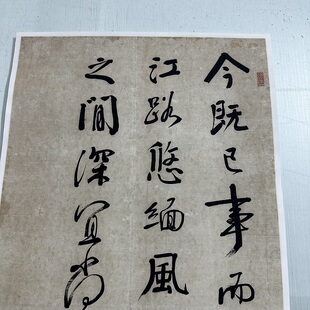 今既已事而
江路悠缅風
之間深宜尚